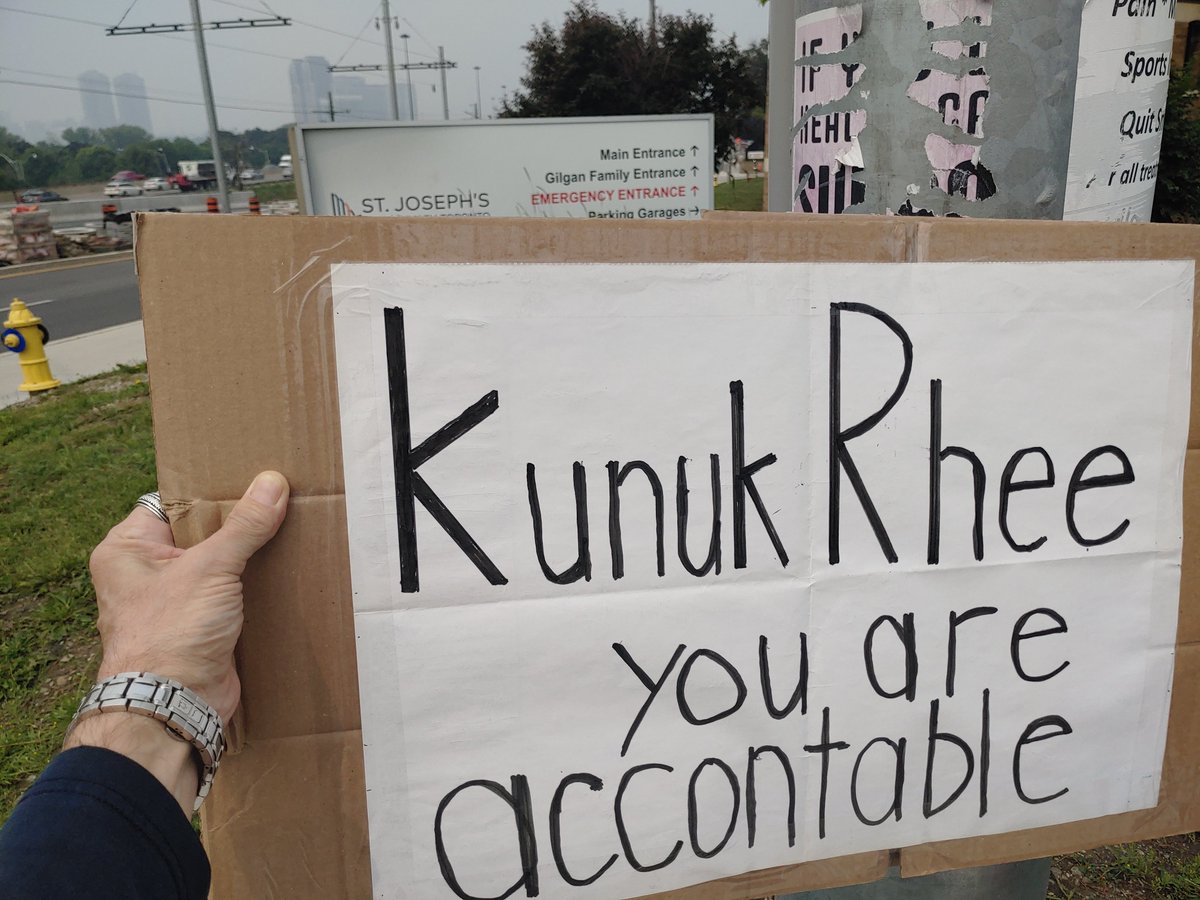 Main Entrance ↑
Gilgan Family Entrance ↑
EMERGENCY ENTRANCE ↑
Parking Garages →
ST. JOSEPH'S
IF
Sports
Quit
Kunuk Rhee
you are
accontable